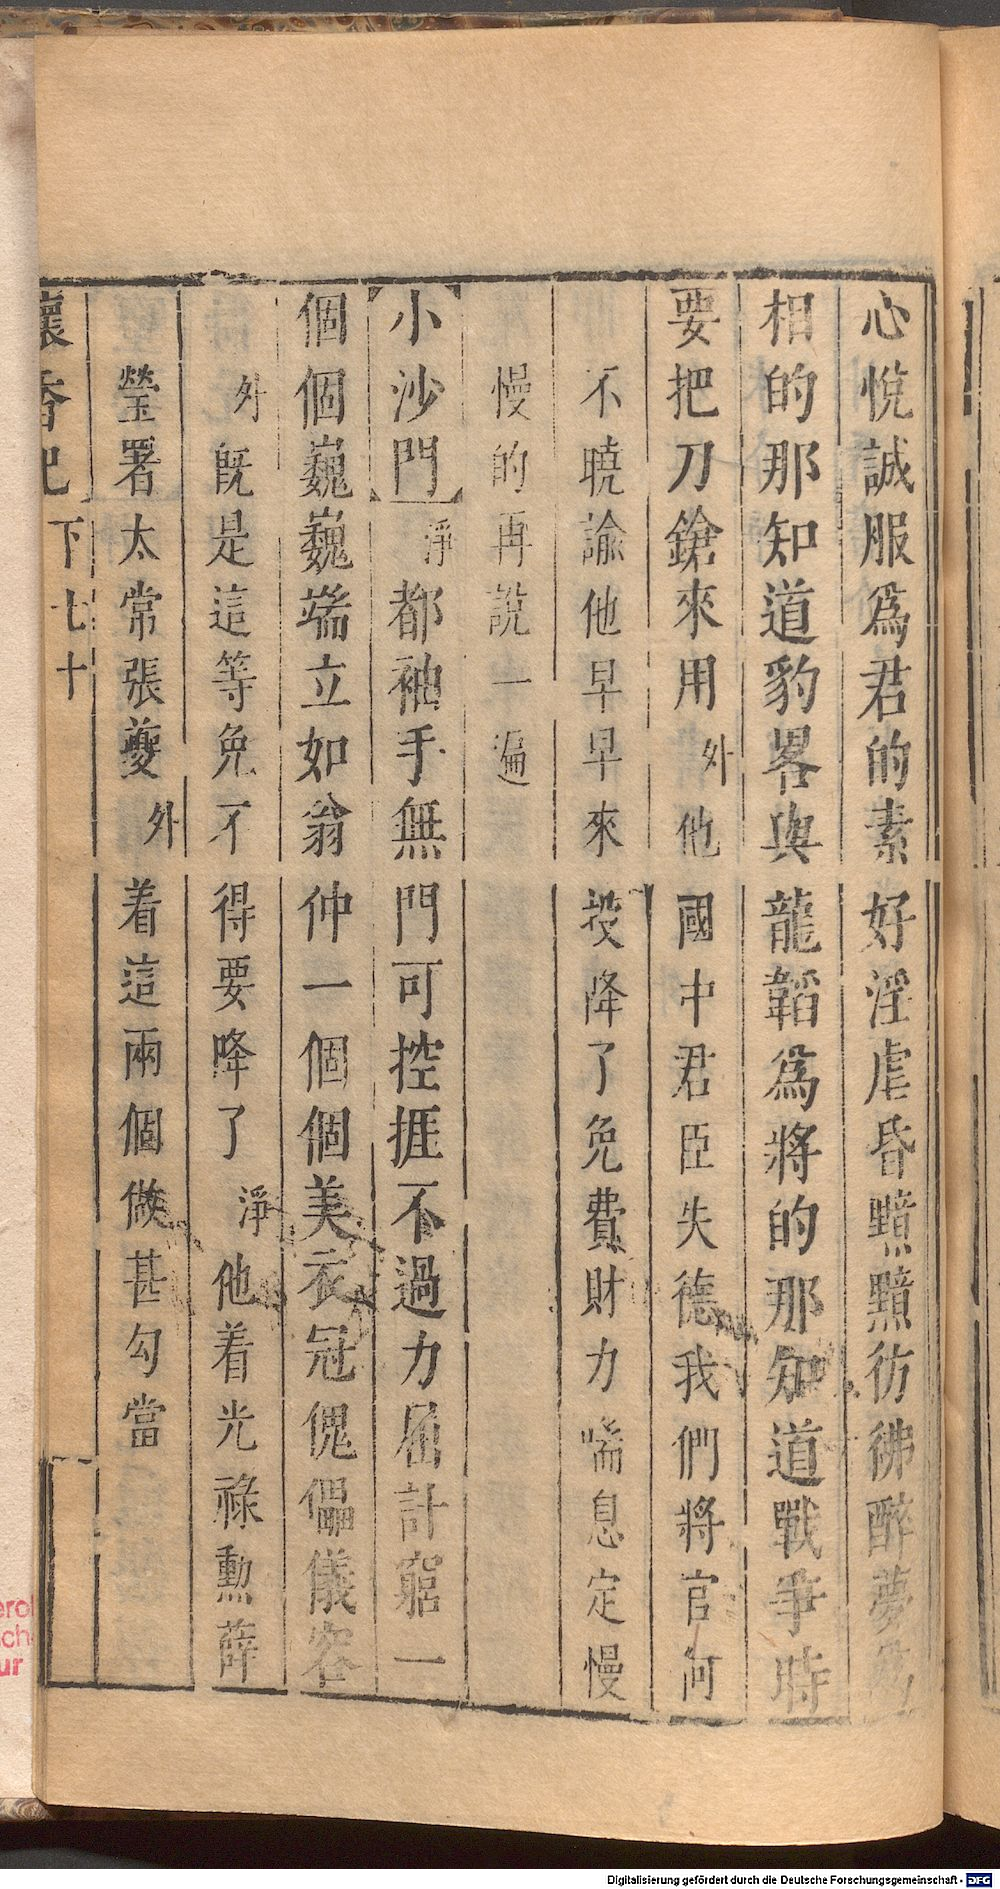 心悅誠服爲君的素好淫虐昏黷黷彷彿醉夢
相的那知道豹畧與龍韜爲將的那知道戰爭時
要把刀鎗來用外他國中君臣失德我們將官何
不曉諭他早早來投降了免費財力喘息定慢
慢的再說一遍
小沙門淨都袖手無門可控捱不過力屈計窮一
個個巍巍端立如翁仲一個個美衣冠傀儡儀容
外旣是這等免不得要降了淨他着光祿勲薛
瑩署太常張夔外着這兩個做甚勾當
懷香記
下七十
Digitalisierung gefördert durch die Deutsche Forschungsgemeinschaft - DFG